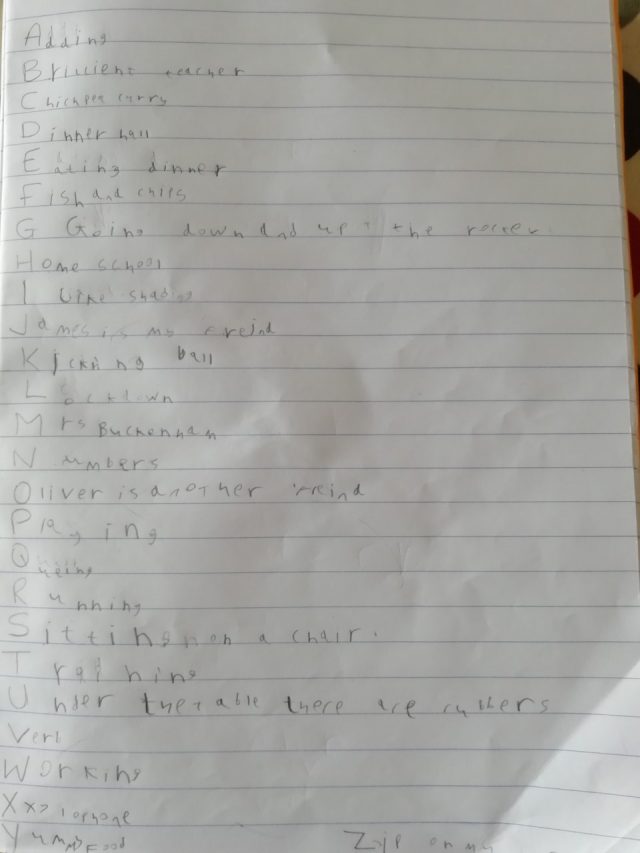 Adding
Brillient teacher
Chickpea curry
Dinner hall
Eating dinner
Fish and chips
G Going down and up the
Home school
I like shading
James is my freind
Kicking ball
Lockdown
Mrs Buckenham
Numbers
Oliver is another freind
Playing
Queing
Running
Sitting on a chair.
Training
Under the table there are rubbers
Verb
Working
Xxylophone
Yummy Food
Zip on my